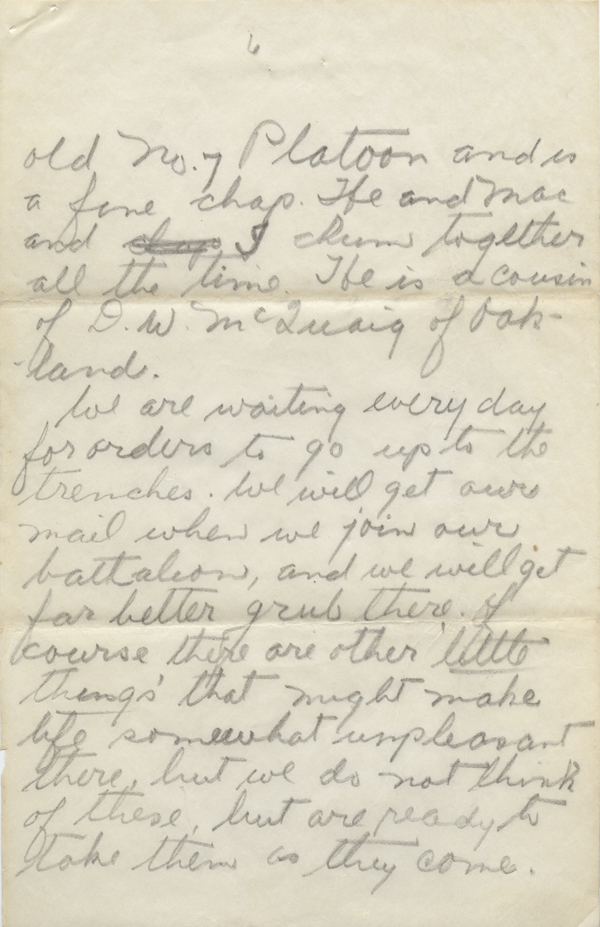 6
old No. 7 Platoon and is
a fine chap. He and Mac
and chap I chum together
all the time. He is a cousin
of D. W. McQuaig of Oak-
-land.
We are waiting every day
for orders to go up to the
trenches. We will get our
mail when we join our
battalion, and we will get
far better grub there. Of
course there are other 'little
things' that might make
life somewhat unpleasant
there, but we do not think
of these, but are ready to
take them as they come.